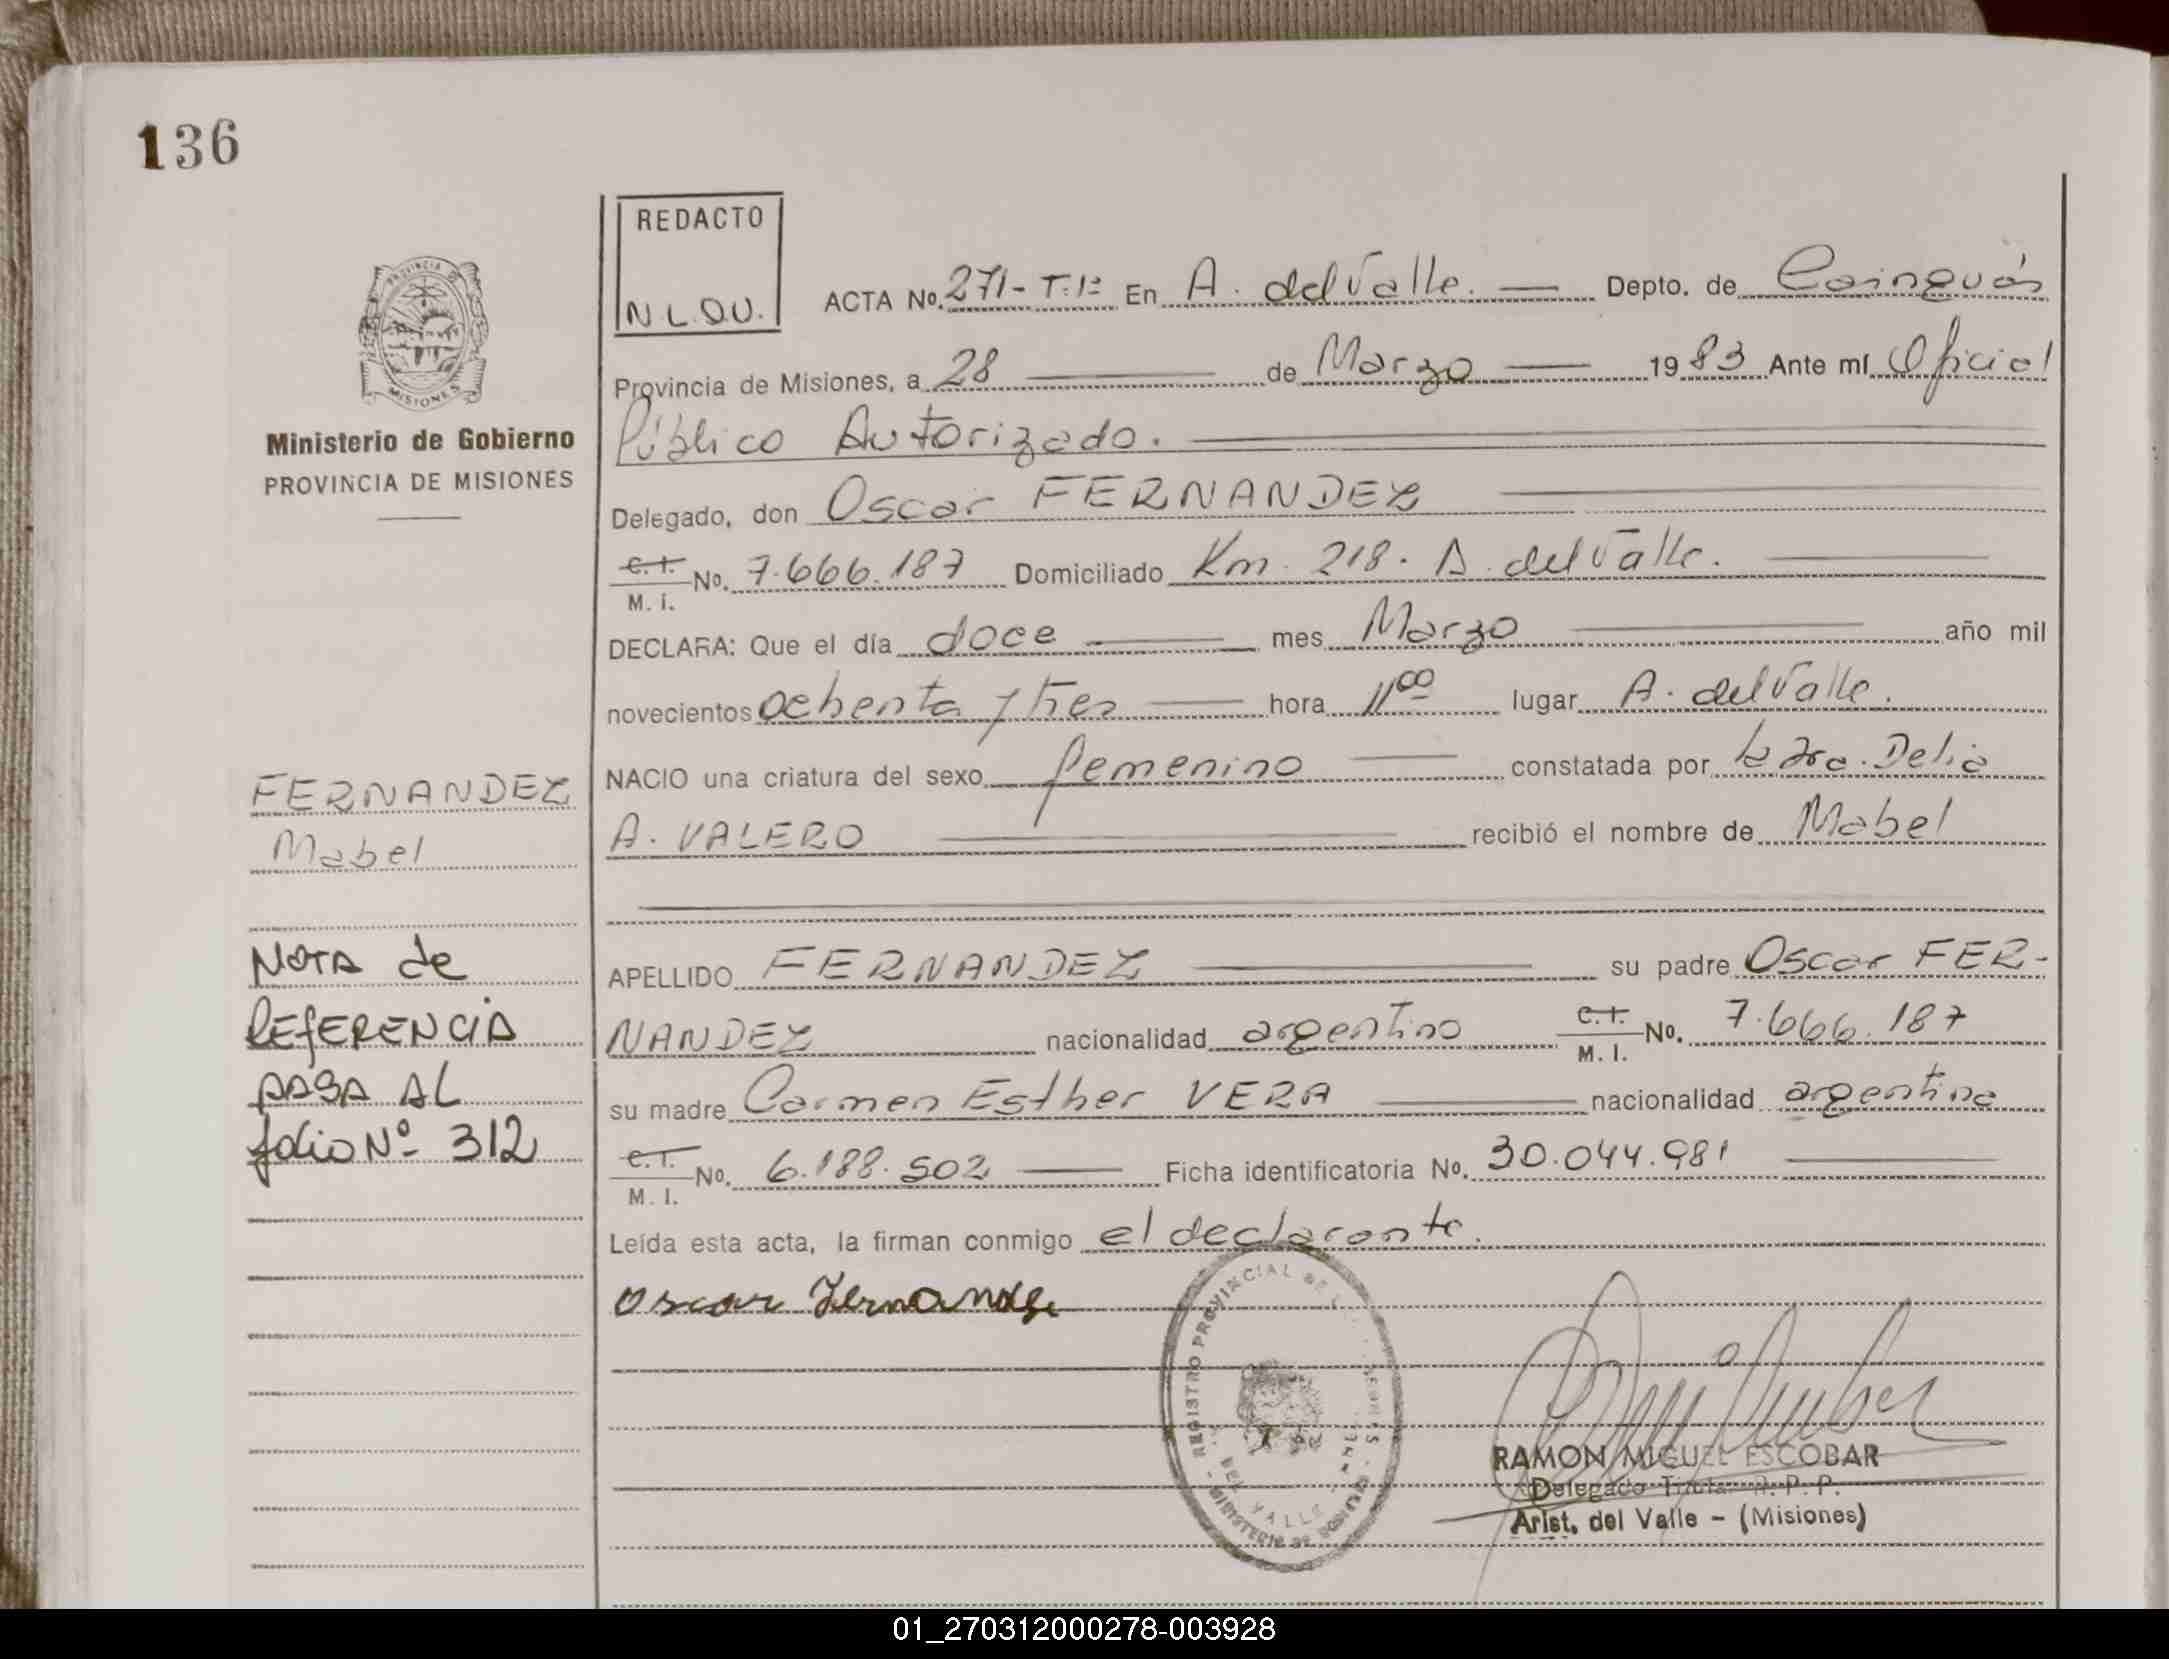 136
REDACTO
N.L.DU.
PROVINCIA DE
MISIONES
Ministerio de Gobierno
PROVINCIA DE MISIONES
ACTA No. 271-T.1º En A. del Valle. — Depto. de Cainguás
Provincia de Misiones, a 28 — de Marzo — 1983 Ante mí Oficial
Público Autorizado. —
Delegado, don Oscar FERNANDEZ —
C.I. M.I. No. 7.666.187 Domiciliado Km. 218. A. del Valle. —
DECLARA: Que el día doce — mes Marzo — año mil
novecientos ochenta y tres — hora 11 00 lugar A. del Valle.
NACIO una criatura del sexo femenino — constatada por la Dra. Delia
A. VALERO — recibió el nombre de Mabel
APELLIDO FERNANDEZ — su padre Oscar FER-
NANDEZ nacionalidad argentino C.I. M.I. No. 7.666.187
su madre Carmen Esther VERA — nacionalidad argentina
C.I. M.I. No. 6.188.502 — Ficha identificatoria No. 30.044.981 —
Leída esta acta, la firman conmigo el declarante.
Oscar Fernandez
FERNANDEZ
Mabel
NOTA de
REFERENCIA
PASA AL
folio Nº 312
REGISTRO PROVINCIAL DE
DEL VALLE
MINISTERIO DE GOBIERNO
RAMON MIGUEL ESCOBAR
Delegado Titular R.P.P.
Arist. del Valle - (Misiones)
01_270312000278-003928